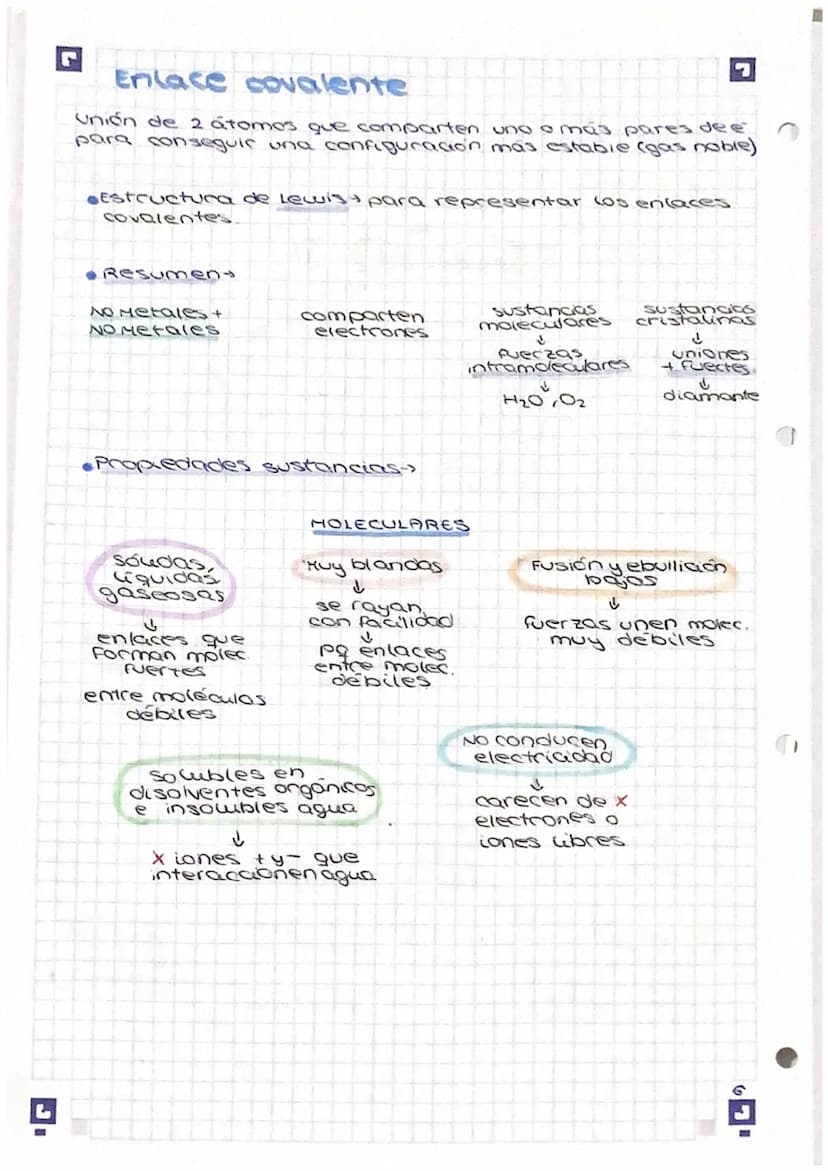 Enlace covalente
Unión de 2 átomos que comparten uno o más pares de e⁻
para conseguir una configuración más estable (gas noble)
• Estructura de Lewis → para representar los enlaces
covalentes.
• Resumen →
NO Metales +
NO Metales
comparten
electrones
sustancias
moleculares
↓
fuerzas
intramoleculares
↓
H₂O, O₂
sustancias
cristalinas
↓
uniones
+ fuertes.
↓
diamante
• Propiedades sustancias →
MOLECULARES
sólidas,
líquidas,
gaseosas
↓
enlaces que
forman molec.
fuertes
entre moléculas
débiles
Muy blandas
↓
se rayan
con facilidad
↓
pq enlaces
entre molec.
débiles
Fusión y ebullición
bajos
↓
fuerzas unen molec.
muy débiles
Solubles en
disolventes orgánicos
e insolubles agua
↓
x iones + y - que
interaccionen agua
No conducen
electricidad
↓
carecen de x
electrones o
iones libres
6